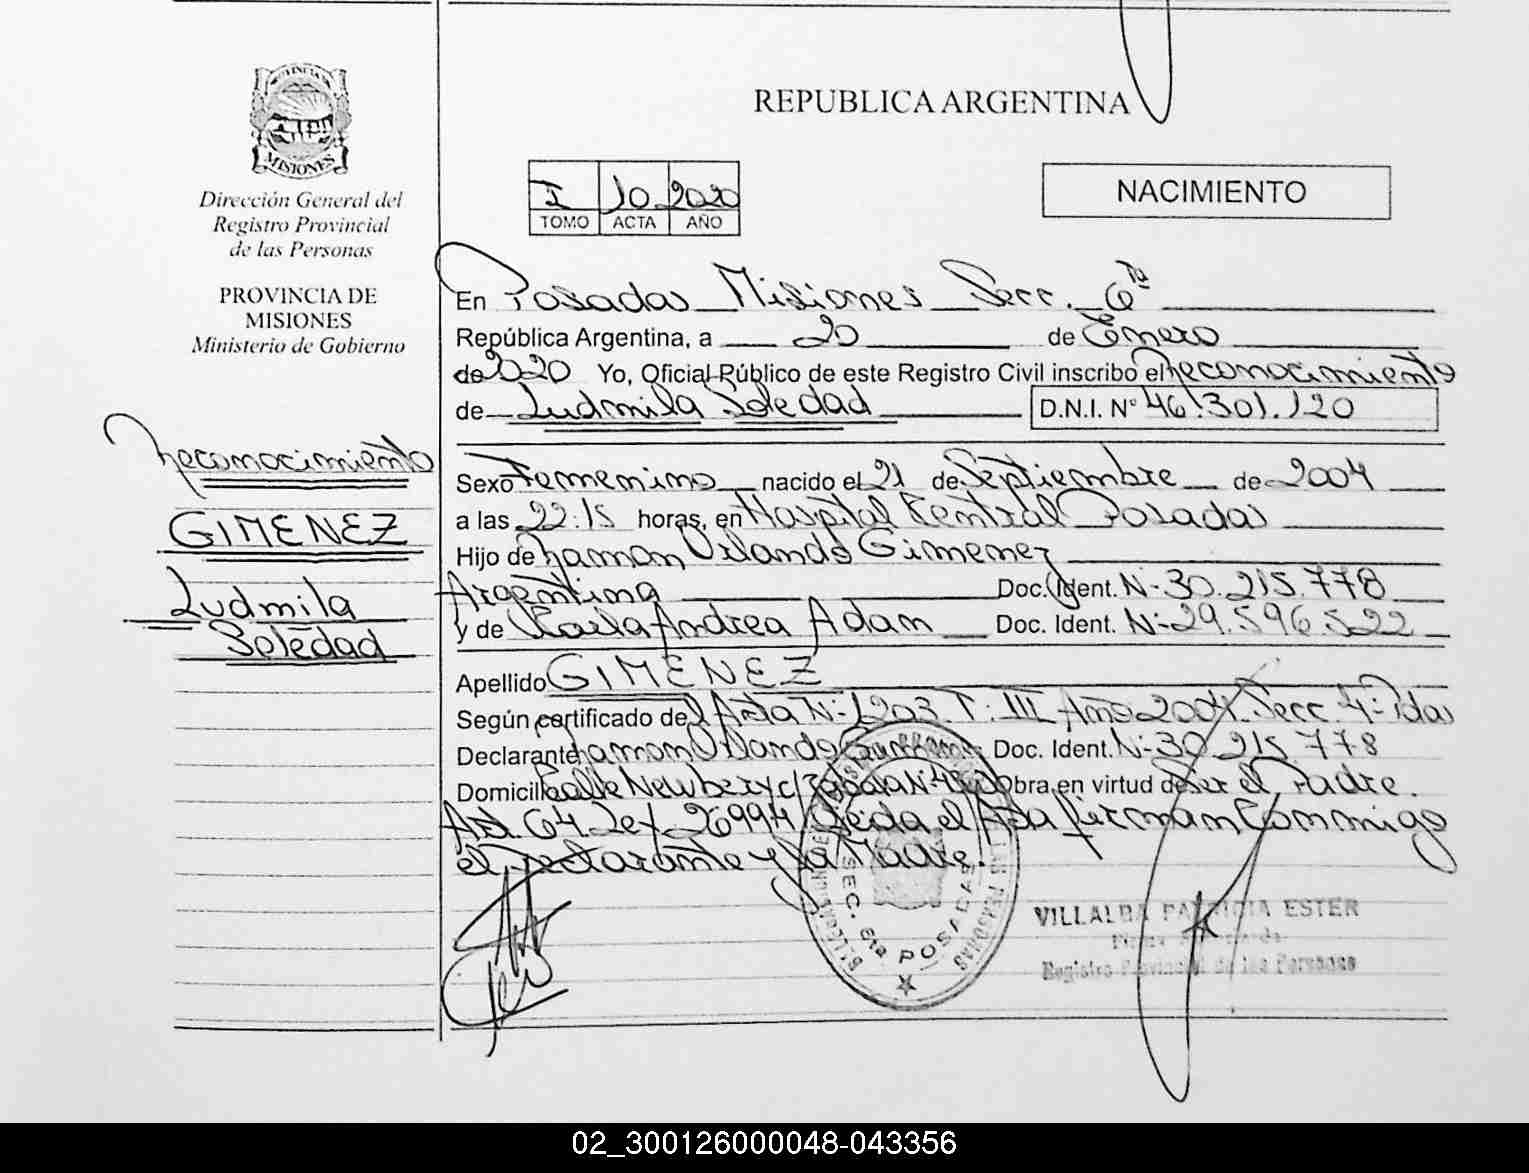 REPUBLICA ARGENTINA
PROVINCIA DE
MISIONES
Dirección General del
Registro Provincial
de las Personas
PROVINCIA DE
MISIONES
Ministerio de Gobierno
I 10 2020
TOMO ACTA AÑO
NACIMIENTO
En Posadas Misiones Secc. 6ta
República Argentina, a 20 de Enero
de 2020 Yo, Oficial Público de este Registro Civil inscribo el Reconocimiento
de Ludmila Soledad D.N.I. N° 46.301.120
Reconocimiento
GIMENEZ
Ludmila
Soledad
Sexo Femenino nacido el 21 de Septiembre de 2004
a las 22:15 horas, en Hospital Central Posadas
Hijo de Ramon Orlando Gimenez
Argentina Doc. Ident. N- 30.215.778
y de Karla Andrea Adam Doc. Ident. N- 29.596.522
Apellido GIMENEZ
Según certificado del Acta N- 1203 T: III Año 2004 Secc. 4- Pdas
Declarante Ramon Orlando Gimenez Doc. Ident. N- 30.215.778
Domicilio Calle Newbery c/ N- Obra en virtud de Ser el Padre.
Art. 64 Ley 26994 Leida el Acta firman Conmigo
el Declarante y la Madre.
SEC. 6ta. POSADAS
VILLALBA PATRICIA ESTER
Registro Provincial de las Personas
02_300126000048-043356